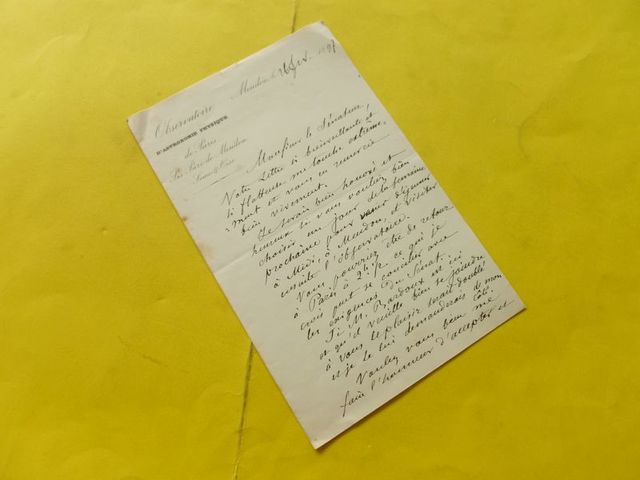 Observatoire
D'ASTRONOMIE PHYSIQUE
de Paris
Sis Parc de Meudon
Seine & Oise
Meudon, le 26 189
Monsieur le Sénateur,
Votre lettre si bienveillante et
si flatteuse me touche extrême-
ment et vous en remercie
bien vivement.
Je serais bien honoré et
heureux si vous vouliez bien
choisir un jour de la semaine
prochaine pour venir déjeuner
à Midi, à Meudon, et visiter
ensuite l'Observatoire.
Vous pourriez être de retour
à Paris à 2h ½ ce qui je
crois peut se concilier avec
les exigences du Sénat.
Si M. Bardoux est ici
et qu'il veuille bien se joindre
à vous le plaisir serait doublé
et je le lui demanderais de mon
côté.
Voulez vous bien me
faire l'honneur d'accepter et